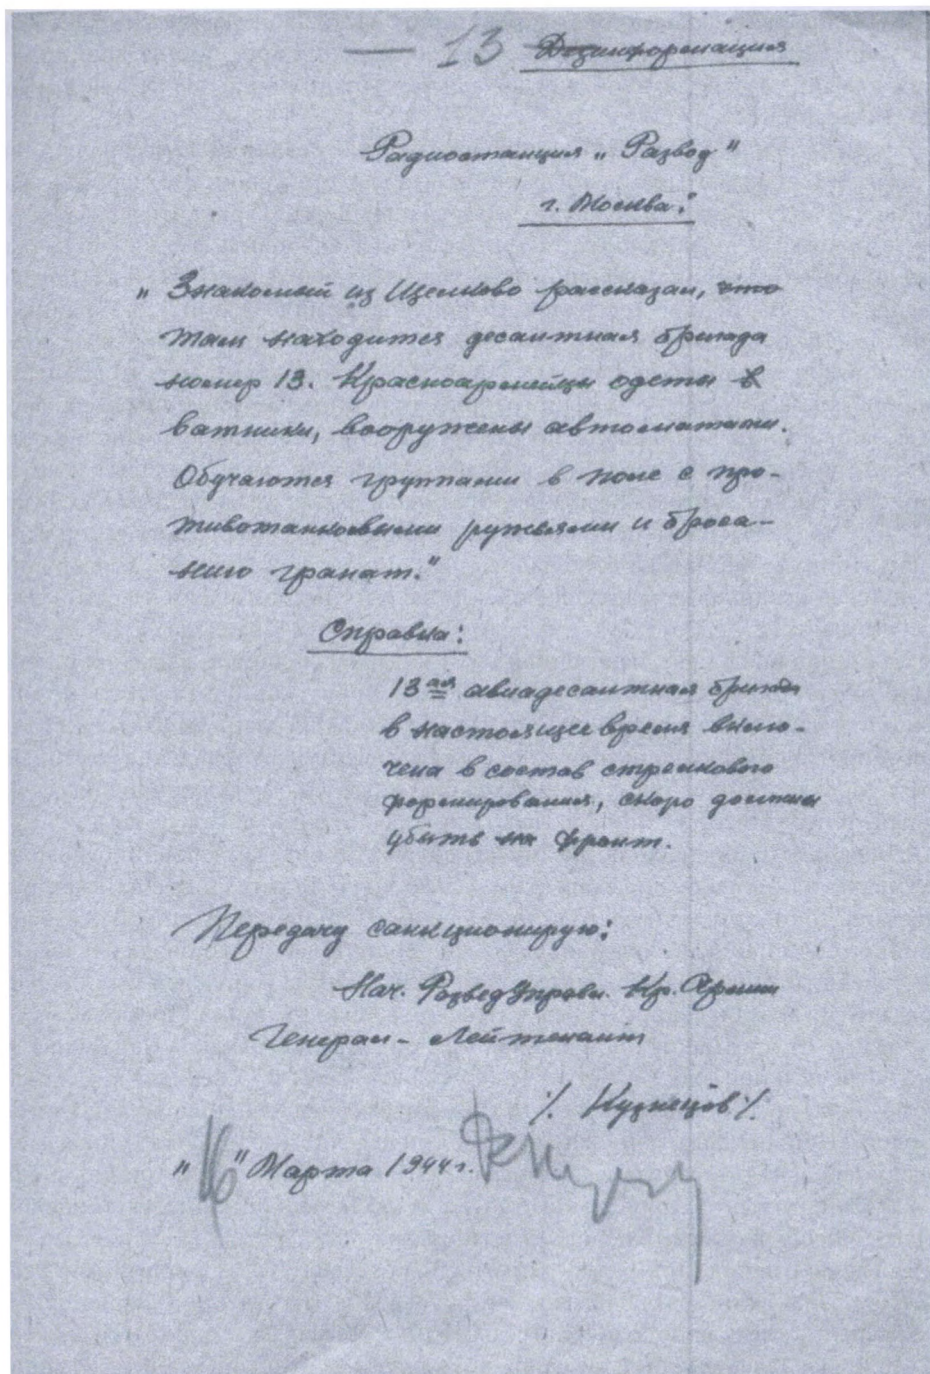 — 13
Дезинформация
Радиостанция „Развод"
г. Москва:
„Знакомый из Щелково рассказал, что
там находится десантная бригада
номер 13. Красноармейцы одеты в
ватники, вооружены автоматами.
Обучаются группами в поле с про-
тивотанковыми ружьями и броса-
нию гранат."
Справка:
13ая авиадесантная бригада
в настоящее время вклю-
чена в состав стрелкового
формирования, скоро должна
убыть на фронт.
Передачу санкционирую:
Нач. РазведУправл. Кр. Армии
Генерал-Лейтенант
/. Кузнецов ./.
„16" Марта 1944 г.